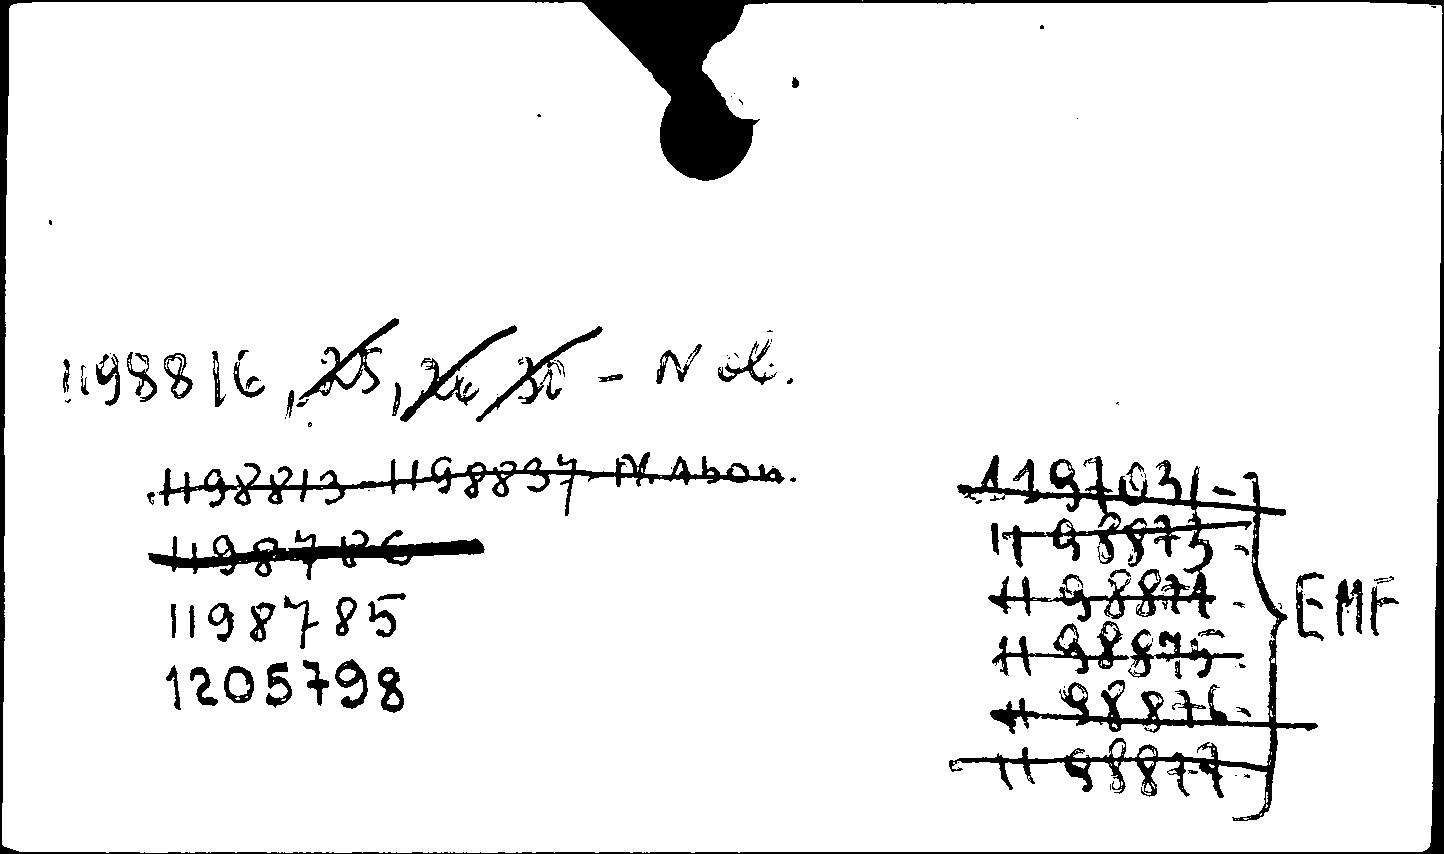 1198816, 25, 26 30 - N ol.
1198813-1198837-N. Abon.
1198786
1198785
1205798
1197031-
1198873-
1198874-
1198875-
1198876-
1198877-
EMF